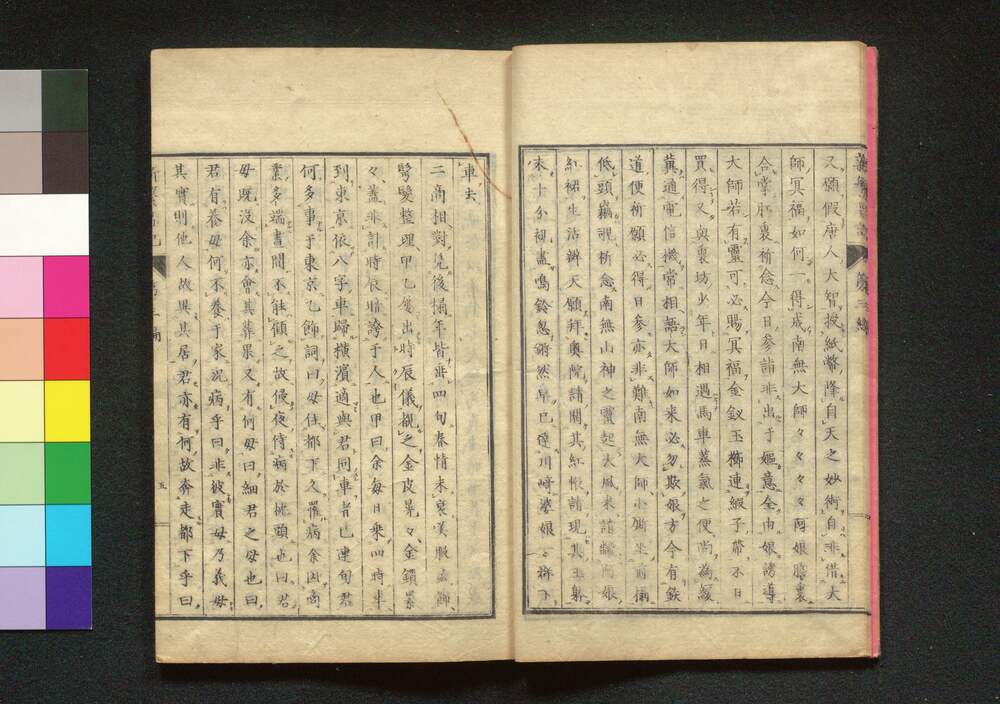 又願假唐人大智授紙幣降自天之妙術自非借大
師冥福如何一得成南無大師々々々々両娘膝裏
合掌肛裏祈念今日参詣非出于嫗意全由娘誘導
大師若有靈可必賜冥福金釵玉櫛連緞子帶不日
買得又與裏坊少年日相遇馬車蒸氣之便尚為緩
冀通電信機常相語大師如来必勿欺娘方今有鉄
道便祈願必得日参亦非難南無大師
低頭 祈念南無山神之靈起大風来
紅裙生活辨天願拜奥院請開其紅帷請現其玉躰
未十分祠盡鳴鈴忽 然早已達川崎婆娘 下
車去
二商相對 後 年皆垂四旬春情未衰美服
鬢髮整理甲乙 出時辰儀覩之金皮晃々金鎖累
々蓋非計時辰暗誇于人也甲曰余每日乘四時半
到東京依八字車歸横濱適與君同車者已連旬君
何多事于東京乙飾詞曰母住都下久罹病余因商
業多端晝間不能顧之故侵夜侍病於枕頭也曰君
母既沒余亦會其葬果又有何母曰細君之母也曰
君有養母何不養于家況病乎曰非彼實母乃義母
其實則他人故異其居君亦有何故奔走都下乎曰
五